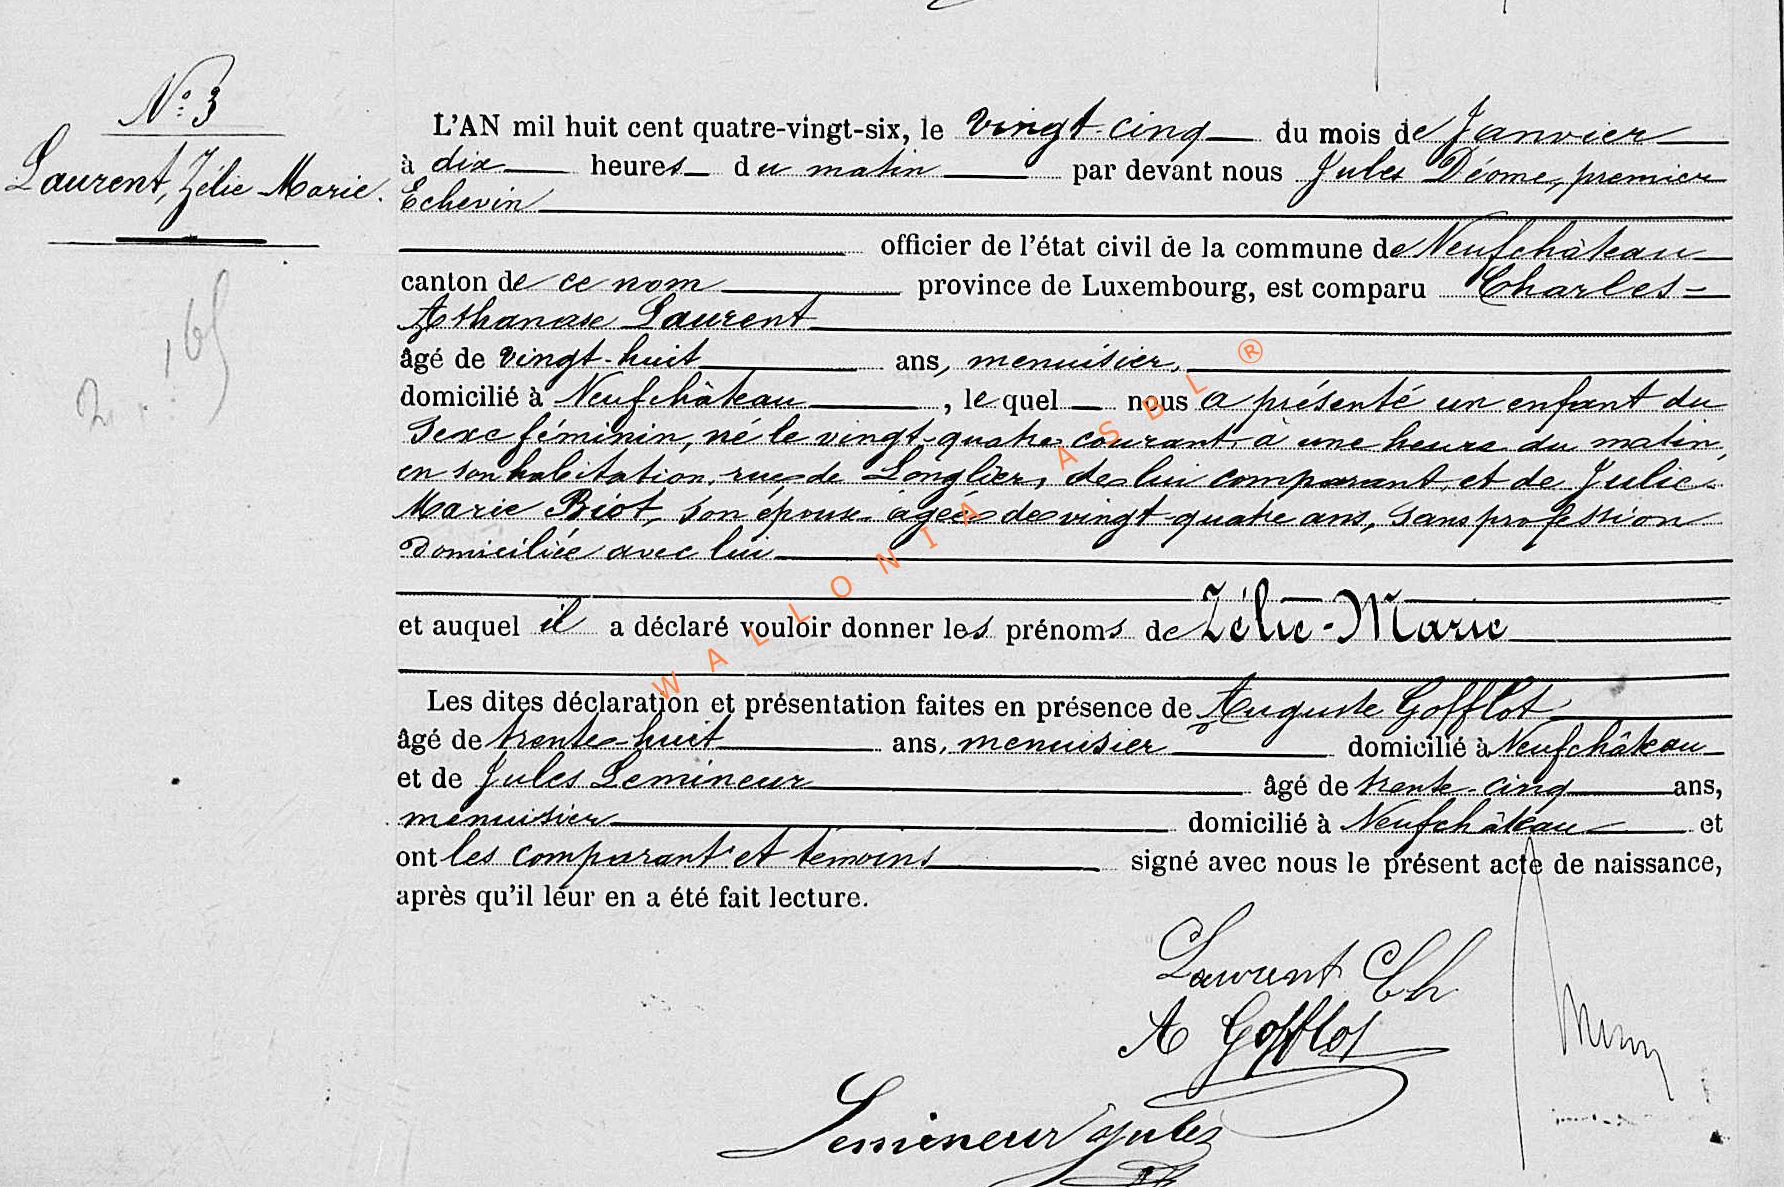 N° 3
Laurent, Zélie Marie.
L'AN mil huit cent quatre-vingt-six, le vingt-cinq du mois de Janvier
à dix heures du matin par devant nous Jules Déome, premier
Echevin
officier de l'état civil de la commune de Neufchâteau
canton de ce nom province de Luxembourg, est comparu Charles-
Athanase Laurent
âgé de vingt-huit ans, menuisier,
domicilié à Neufchâteau, le quel nous a présenté un enfant du
sexe féminin, né le vingt-quatre courant à une heure du matin,
en son habitation, rue de Longlier, de lui comparant, et de Julie-
Marie Biot, son épouse âgée de vingt-quatre ans, sans profession
domiciliée avec lui
et auquel il a déclaré vouloir donner les prénoms de Zélie-Marie
Les dites déclaration et présentation faites en présence de Auguste Gofflot
âgé de trente-huit ans, menuisier domicilié à Neufchâteau
et de Jules Lemineur âgé de trente-cinq ans,
menuisier domicilié à Neufchâteau et
ont les comparant et témoins signé avec nous le présent acte de naissance,
après qu'il leur en a été fait lecture.
Laurent Ch
A Gofflot
Lemineur Jules
WALLONIA ASBL ®